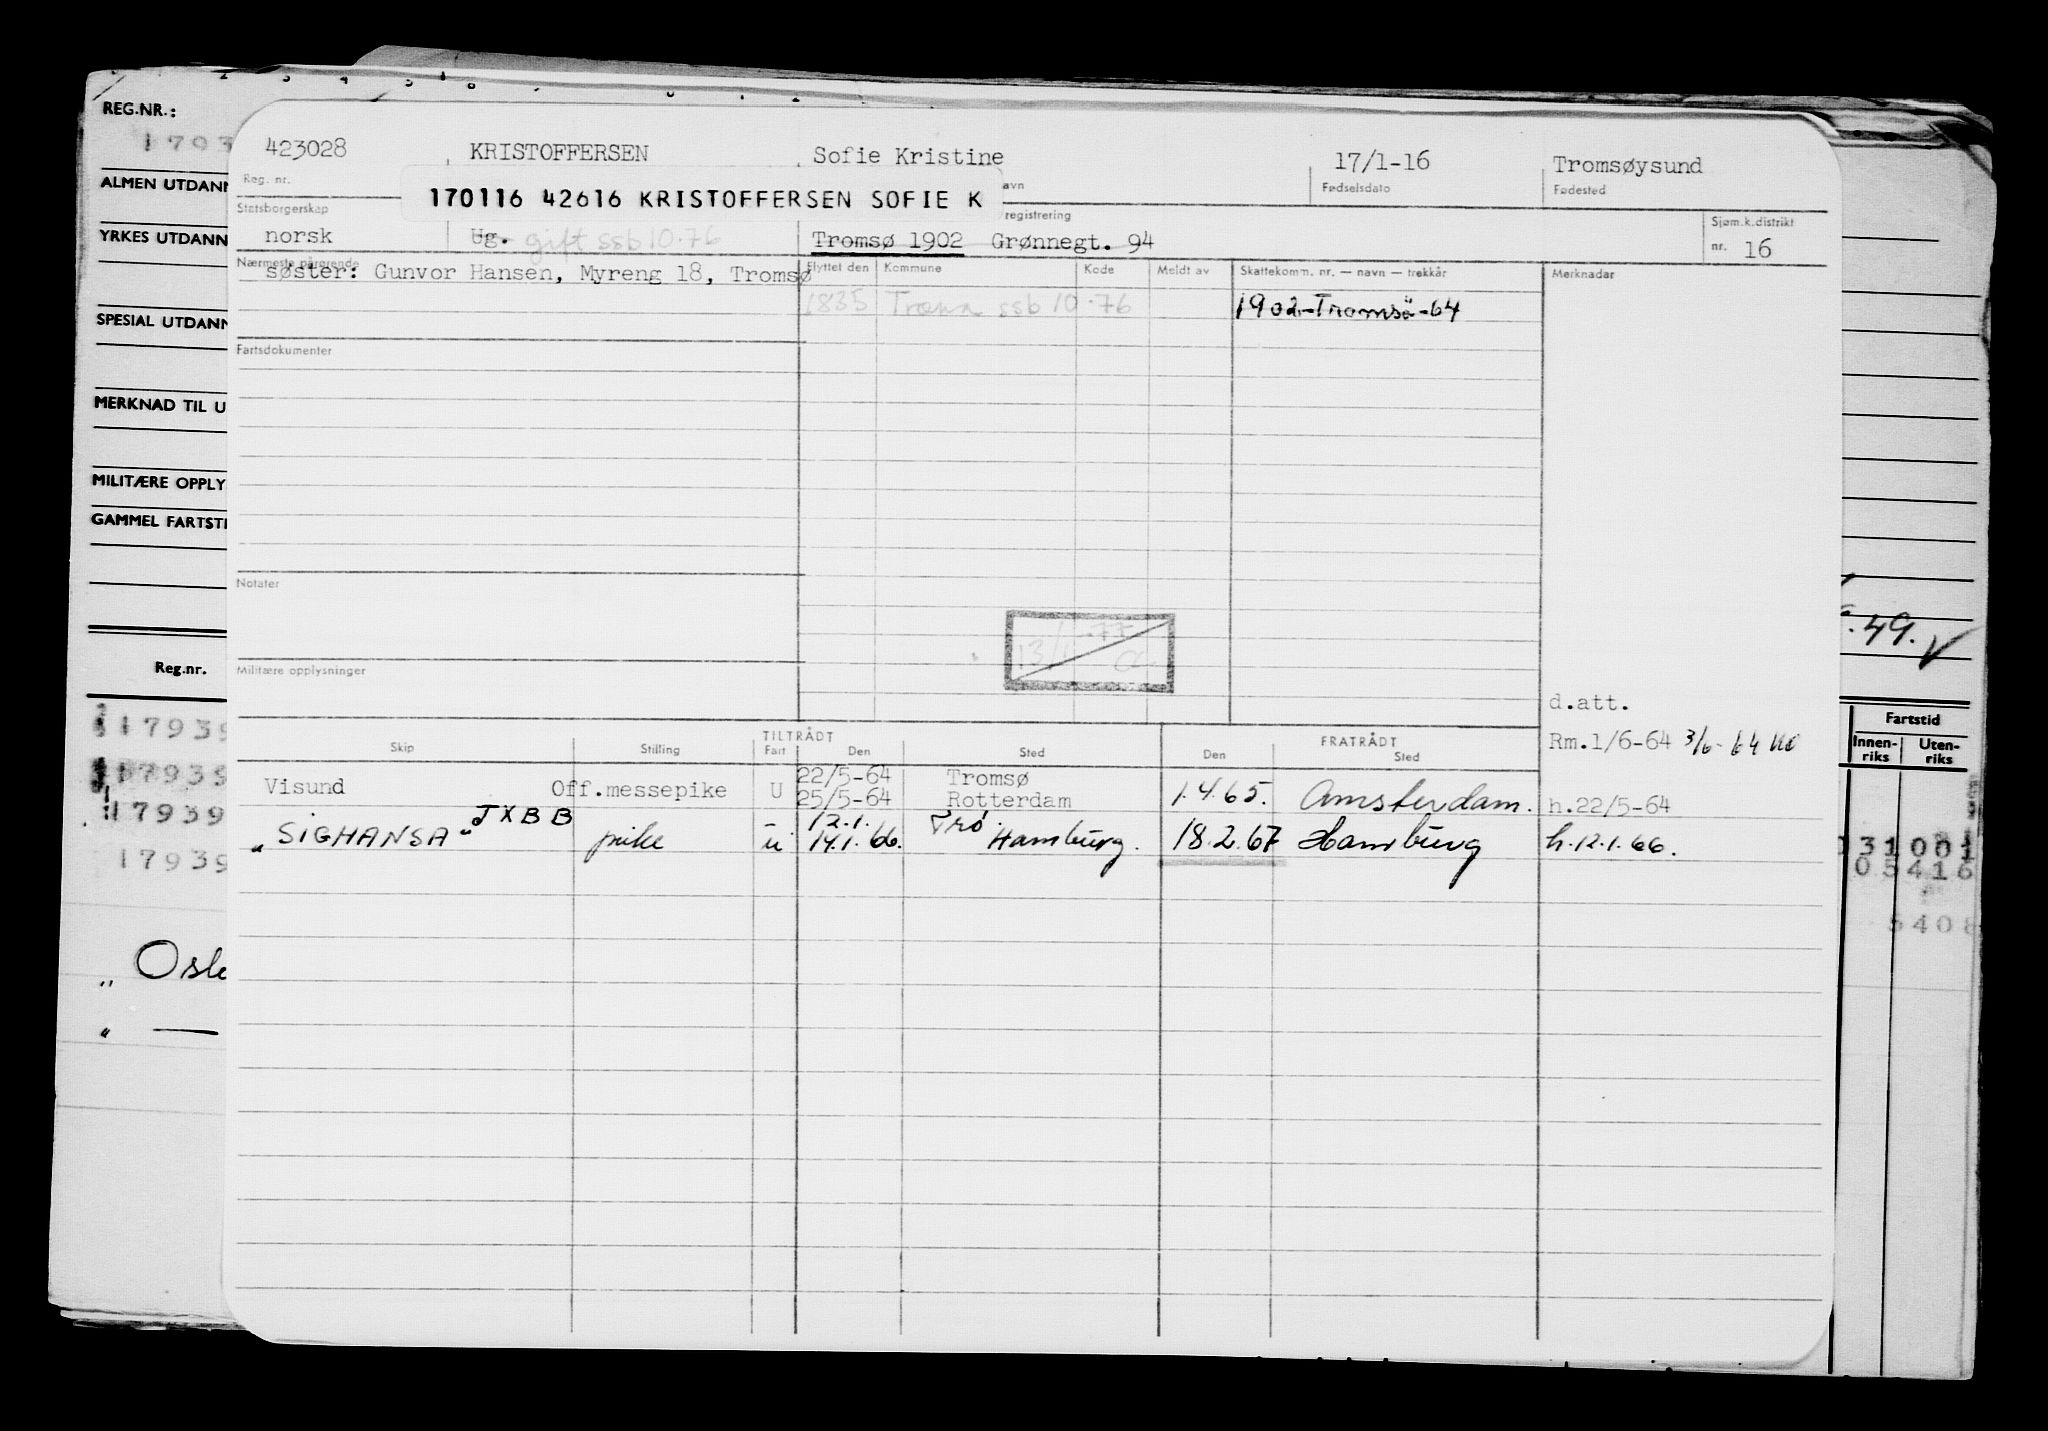 REG.NR.:
1793
ALMEN UTDANN
YRKES UTDANN
SPESIAL UTDANN
MERKNAD TIL U
MILITÆRE OPPLY
GAMMEL FARTSTI
Reg.nr.
17939
17939
17939
17939
" Osl
" —
423028 KRISTOFFERSEN Sofie Kristine 17/1-16 Tromsøysund
Reg. nr. avn Fødselsdato Fødested
170116 42616 KRISTOFFERSEN SOFIE K
Statsborgerskap registrering Sjøm.k.distrikt
norsk Ug. gift ssb 10.76 Tromsø 1902 Grønnegt. 94 nr. 16
Nærmeste pårørende Flyttet den Kommune Kode Meldt av Skattekomm. nr. — navn — trekkår Merknader
søster: Gunvor Hansen, Myreng 18, Tromsø
1835 Træna ssb 10.76 1902-Tromsö-64
Fartsdokumenter
Notater
13/1 -77
Militære opplysninger
d.att.
TILTRÅDT FRATRÅDT Rm.1/6-64 3/6-64
Skip Stilling Fart Den Sted Den Sted
Visund Off.messepike U 22/5-64 Tromsø
25/5-64 Rotterdam 1.4.65. Amsterdam. h.22/5-64
"SIGHANSA" JXBB pike - 12.1. Trø.
u 14.1.66. Hamburg. 18.2.67 Hamburg h.12.1.66.
.49.
Fartstid
Innen-riks Uten-riks
31001
05416
5408